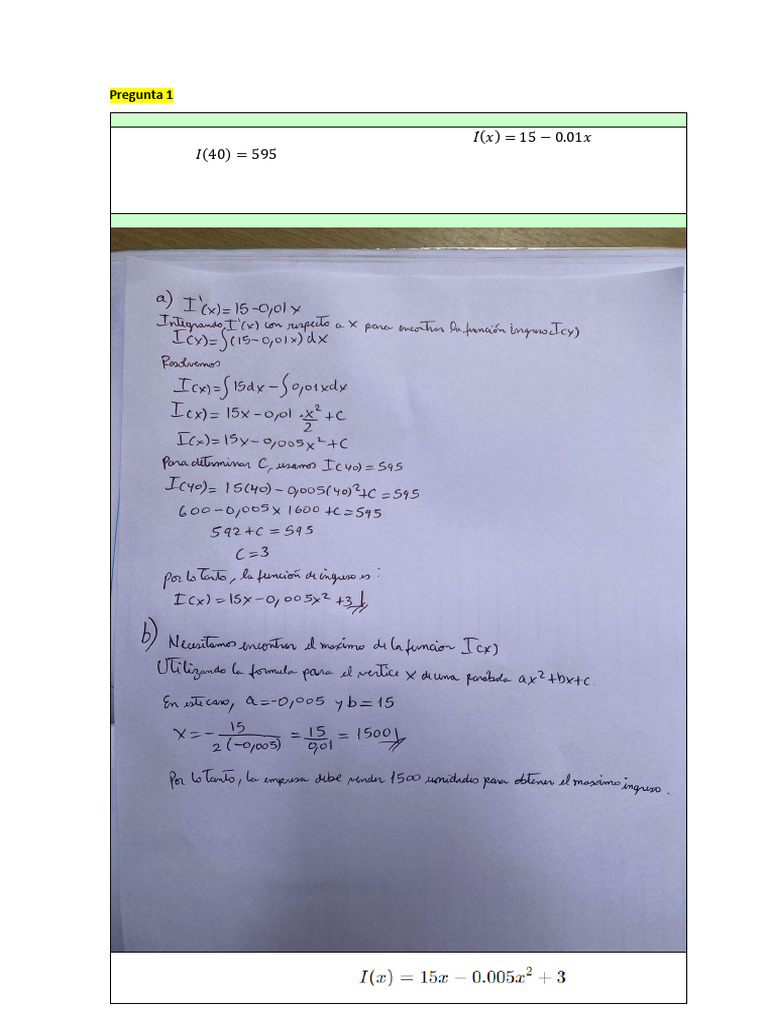 Pregunta 1
I(x) = 15 − 0.01x
I(40) = 595
a) I'(x) = 15 - 0,01x
Integrando, I'(x) con respecto a x para encontrar la función ingreso I(x)
I(x) = ∫(15 - 0,01x) dx
Resolvemos
I(x) = ∫15dx - ∫0,01xdx
I(x) = 15x - 0,01 · x²/2 + C
I(x) = 15x - 0,005x² + C
Para determinar C, usamos I(40) = 595
I(40) = 15(40) - 0,005(40)² + C = 595
600 - 0,005 x 1600 + C = 595
592 + C = 595
C = 3
por lo Tanto, la función de ingreso es:
I(x) = 15x - 0,005x² + 3
b) Necesitamos encontrar el maximo de la funcion I(x)
Utilizando la formula para el vertice x de una parábola ax² + bx + c.
En este caso, a = -0,005 y b = 15
x = - 15/2(-0,005) = 15/0,01 = 1500
Por lo Tanto, la empresa debe vender 1500 unidades para obtener el maximo ingreso.
I(x) = 15x − 0.005x² + 3